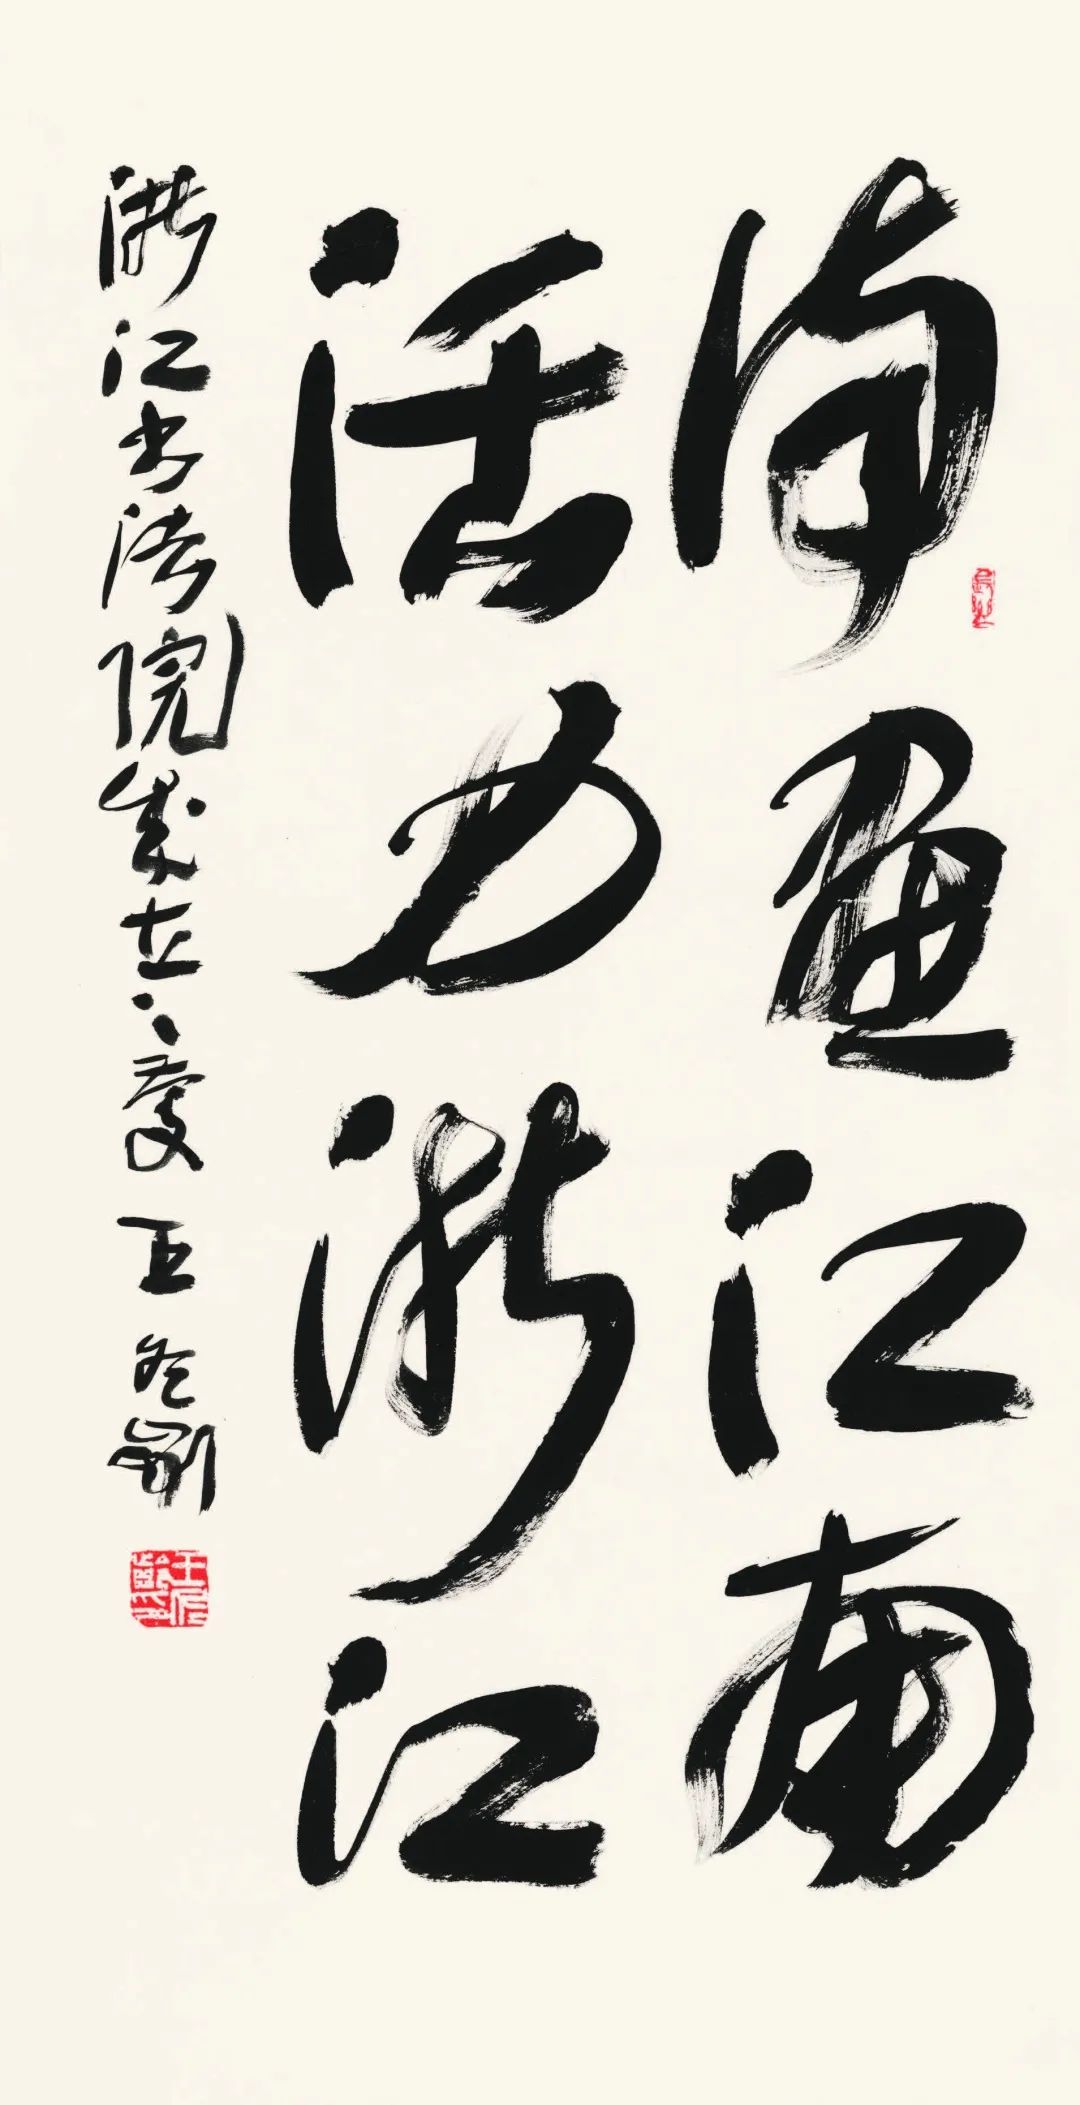 诗画江南
活力浙江
浙江书法院成立之慶 王冬齡